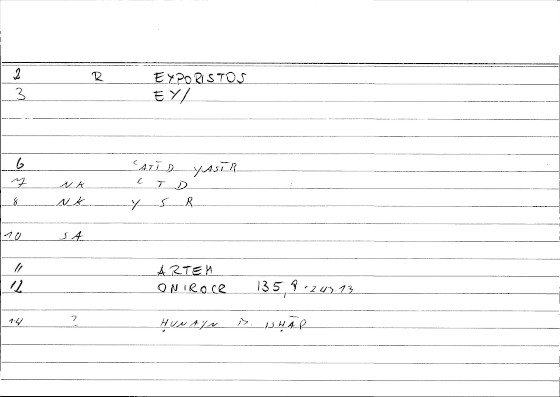 2 R EYPORISTOS
3 EY/
6 ʿATĪD YASĪR
7 NK ʿ T D
8 NK Y S R
10 SA
11 ARTEM
12 ONIROCR 135,9
14 ? ḤUNAYN